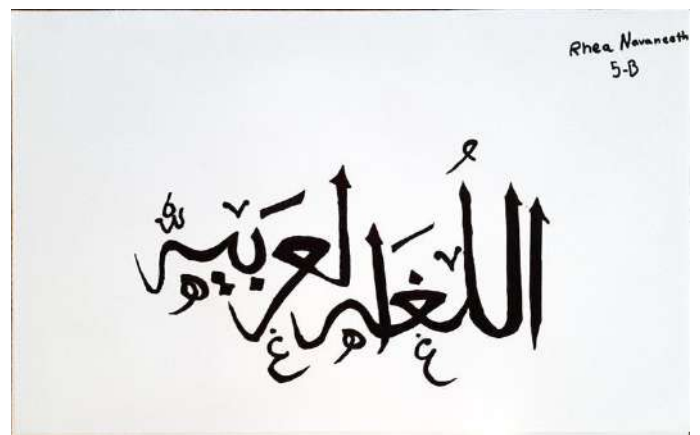 Rhea Navaneeth
5-B
اللُغه العربيه